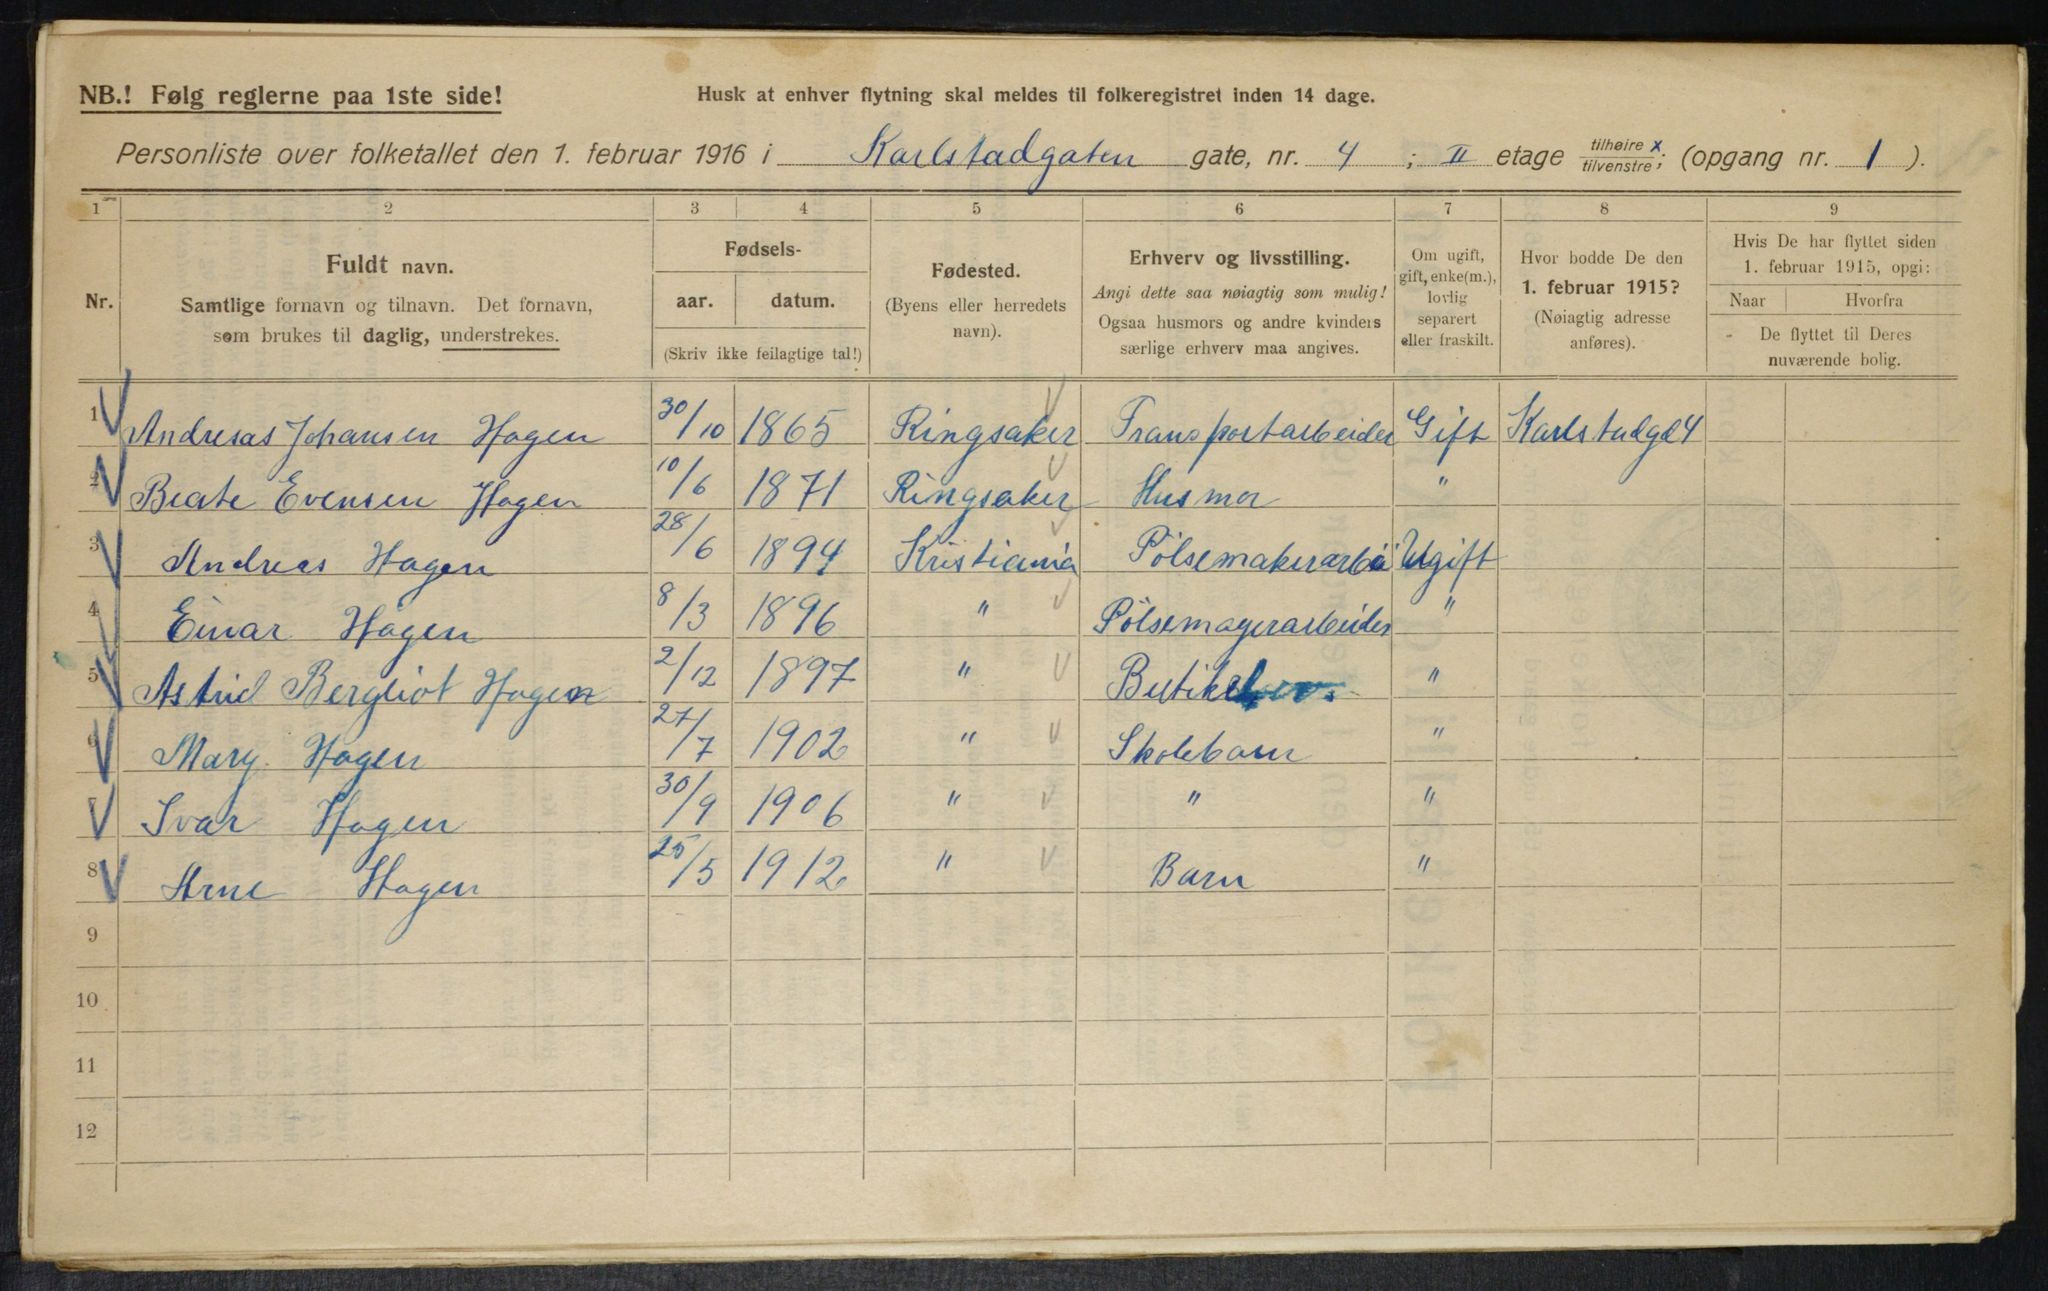 NB.! Følg reglerne paa 1ste side!
Husk at enhver flytning skal meldes til folkeregistret inden 14 dage.
Personliste over folketallet den 1. februar 1916 i Karlstadgaten gate, nr. 4 ; II etage tilhøire x / tilvenstre ; (opgang nr. 1 ).
1 2 3 4 5 6 7 8 9
Nr.
Fuldt navn.
Samtlige fornavn og tilnavn. Det fornavn,
som brukes til daglig, understrekes.
Fødsels-
aar. datum.
(Skriv ikke feilagtige tal!)
Fødested.
(Byens eller herredets
navn).
Erhverv og livsstilling.
Angi dette saa nøiagtig som mulig!
Ogsaa husmors og andre kvinders
særlige erhverv maa angives.
Om ugift,
gift, enke(m.),
lovlig
separert
eller fraskilt.
Hvor bodde De den
1. februar 1915?
(Nøiagtig adresse
anføres).
Hvis De har flyttet siden
1. februar 1915, opgi:
Naar Hvorfra
De flyttet til Deres
nuværende bolig.
1 Andreas Johansen Hagen 30/10 1865 Ringsaker Transportarbeider Gift Karlstadgd 4
2 Beate Evensen Hagen 10/6 1871 Ringsaker Husmor "
3 Andreas Hagen 28/6 1894 Kristiania Pölsemakerarbei Ugift
4 Einar Hagen 8/3 1896 " Pölsemagerarbeider "
5 Astrid Bergliot Hagen 2/12 1897 " "
6 Mary Hagen 27/7 1902 " Skolebarn "
7 Ivar Hagen 30/9 1906 " " "
8 Arne Hagen 25/5 1912 " Barn "
9
10
11
12